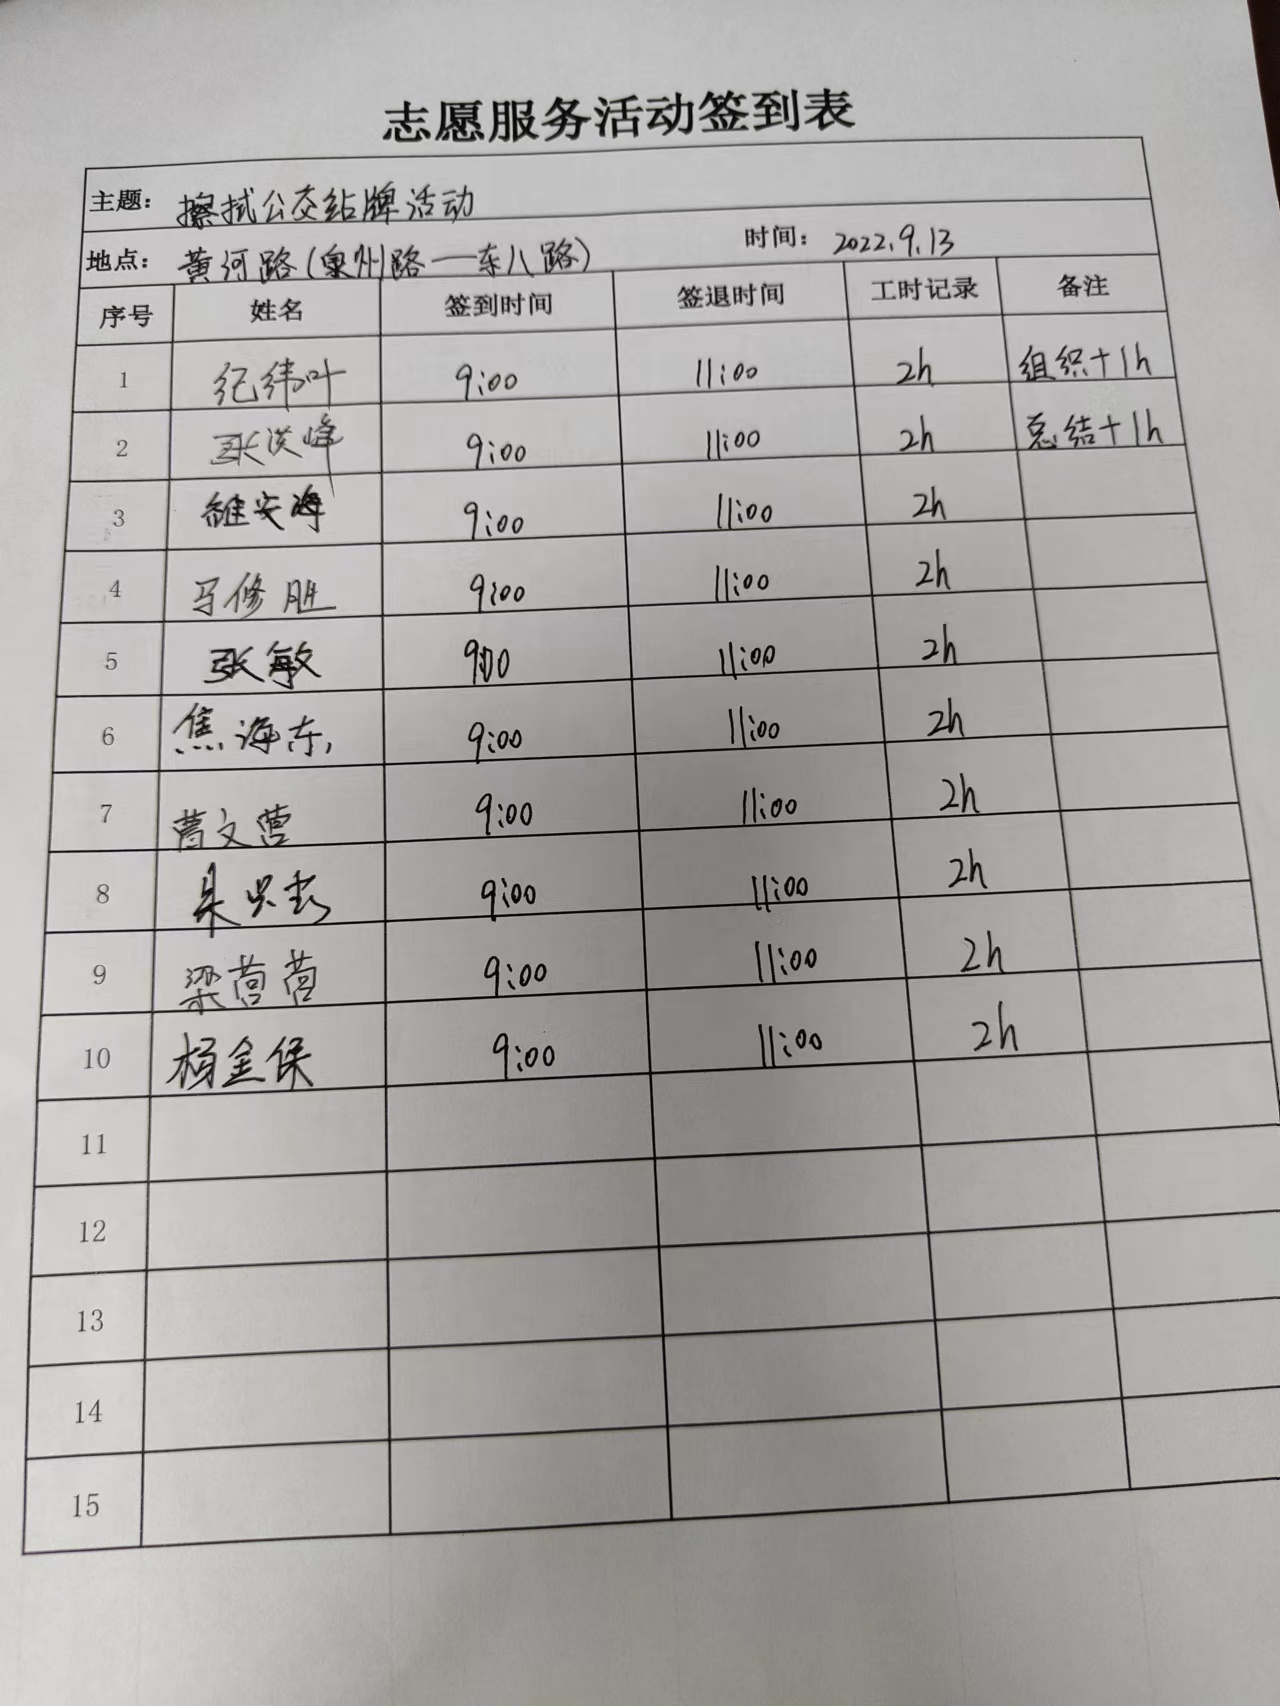 志愿服务活动签到表
主题： 擦拭公交站牌活动
地点： 黄河路(泉州路一东八路) 时间： 2022.9.13
序号 姓名 签到时间 签退时间 工时记录 备注
1 纪纬叶 9:00 11:00 2h 组织+1h
2 张洪峰 9:00 11:00 2h 总结+1h
3 安海 9:00 11:00 2h
4 马修胜 9:00 11:00 2h
5 张敏 9:00 11:00 2h
6 焦海东 9:00 11:00 2h
7 曹文营 9:00 11:00 2h
8 9:00 11:00 2h
9 梁营营 9:00 11:00 2h
10 杨金保 9:00 11:00 2h
11
12
13
14
15